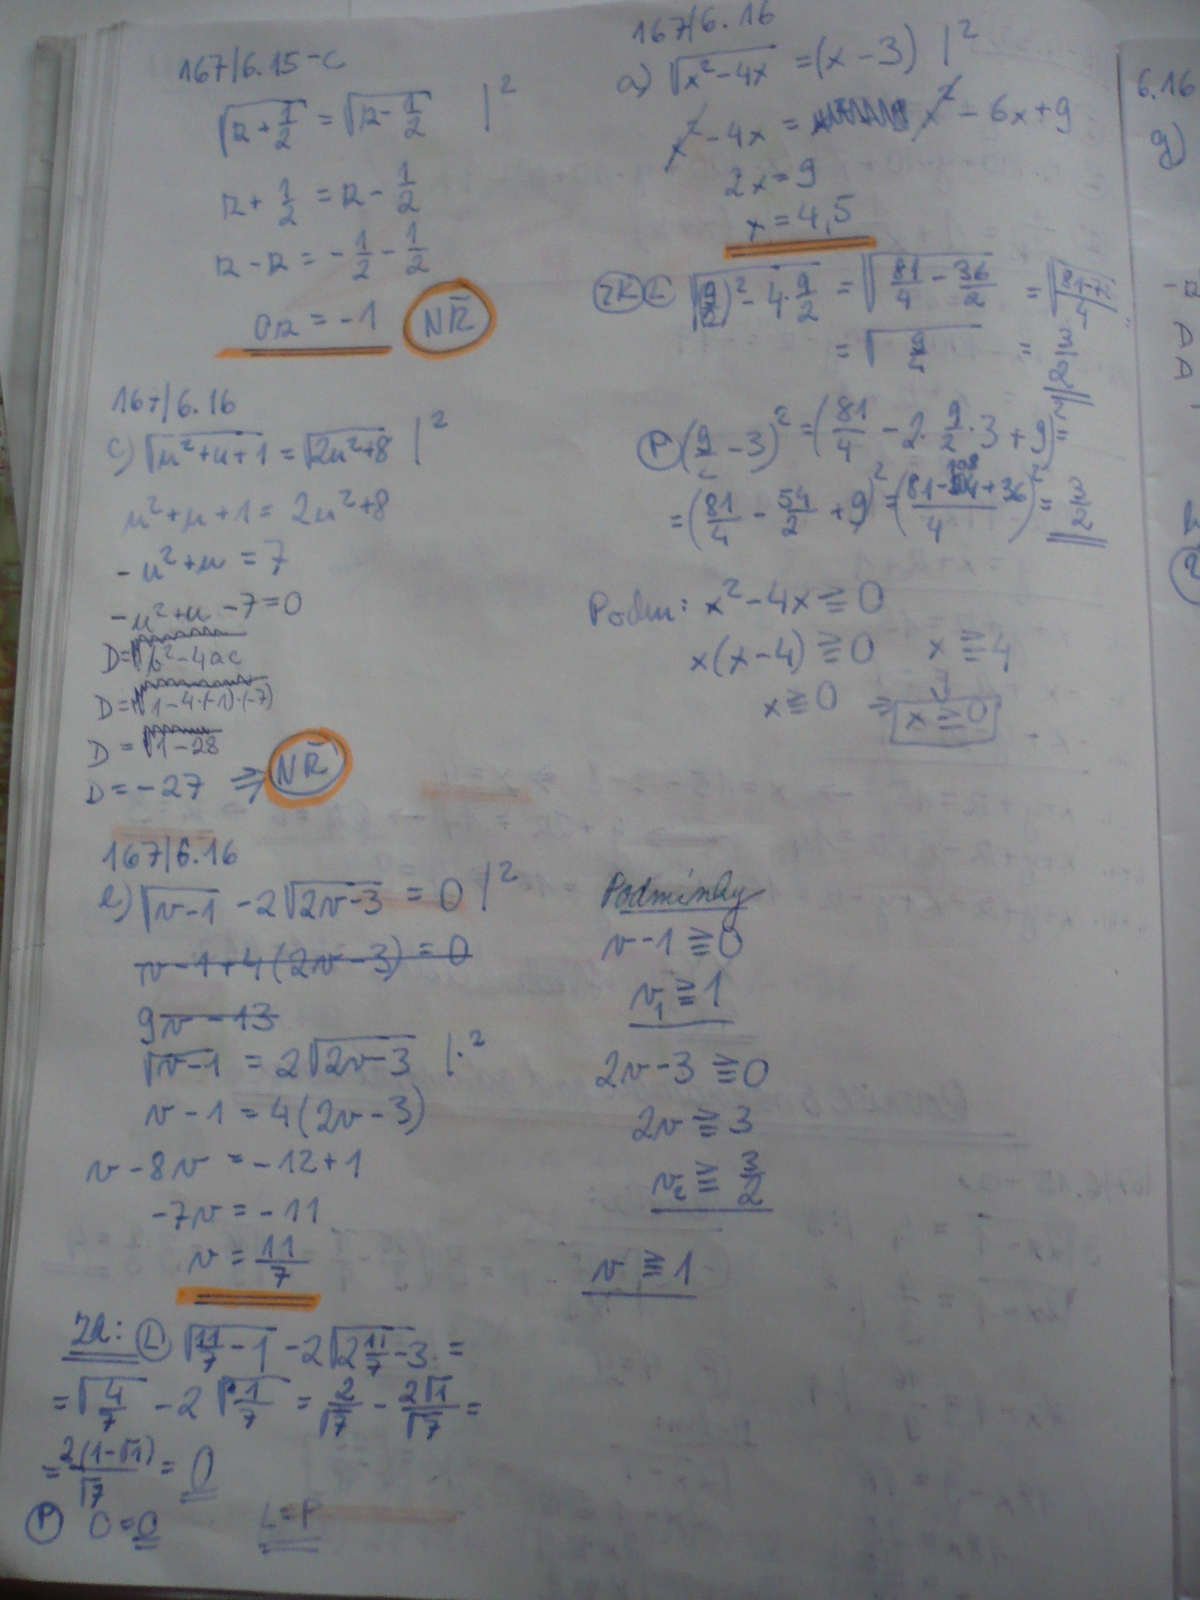 167/6.15-c
√(z+1/2) = √(z-1/2) |²
z+1/2 = z-1/2
z-z = -1/2-1/2
0z = -1 NŘ
167/6.16
c) √(u²+u+1) = √(2u²+8) |²
u²+u+1 = 2u²+8
-u²+u = 7
-u²+u-7=0
D=b²-4ac
D=1-4·(-1)·(-7)
D=1-28
D=-27 ⇒ NŘ
167/6.16
e) √(v-1) -2√(2v-3) = 0 |²
v-1+4(2v-3) = 0
9v-13
√(v-1) = 2√(2v-3) |·²
v-1 = 4(2v-3)
v-8v = -12+1
-7v = -11
v = 11/7
Zk: L √(11/7-1) -2√(2 11/7-3) =
= √(4/7) -2√(1/7) = 2/√7 - 2√1/√7 =
= 2(1-√1)/√7 = 0
P 0=0 L=P
167/6.16
a) √(x²-4x) = (x-3) |²
x²-4x = x²-6x+9
2x=9
x=4,5
ZK L √((9/2)²-4·9/2) = √(81/4-36/2) = √(81-72/4)
= √(9/4) = 3/2
P (9/2-3)² = (81/4-2·9/2·3+9)=
= (81/4-54/2+9)² = (81-108+36/4)² = 3/2
Podm: x²-4x ≥ 0
x(x-4) ≥ 0 x ≥ 4
x ≥ 0 ⇒ x ≥ 0
Podmínky
v-1 ≥ 0
v₁ ≥ 1
2v-3 ≥ 0
2v ≥ 3
v₂ ≥ 3/2
v ≥ 1
6.16